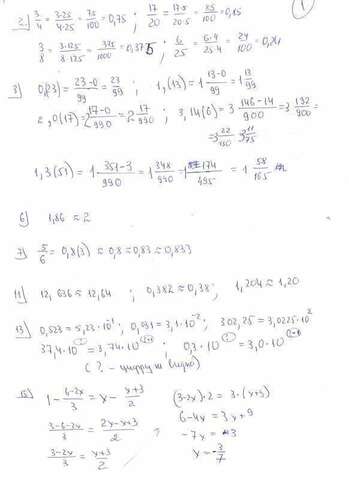 1
2) 3/4 = 3·25/4·25 = 75/100 = 0,75 ; 17/20 = 17·5/20·5 = 85/100 = 0,85
3/8 = 3·125/8·125 = 375/1000 = 0,375 ; 6/25 = 6·4/25·4 = 24/100 = 0,24
3) 0,(23) = 23-0/99 = 23/99 ; 1,(13) = 1 13-0/99 = 1 13/99
2,0(17) = 2 17-0/990 = 2 17/990 ; 3,14(6) = 3 146-14/900 = 3 132/900 =
= 3 22/150 3 11/75
1,3(51) = 1 351-3/990 = 1 348/990 = 1 174/495 = 1 58/165
6) 1,86 ≈ 2
7) 5/6 = 0,8(3) ≈ 0,8 ≈ 0,83 ≈ 0,833
11) 12,636 ≈ 12,64 ; 0,382 ≈ 0,38 ; 1,204 ≈ 1,20
13) 0,523 = 5,23·10⁻¹ ; 0,031 = 3,1·10⁻² ; 302,25 = 3,0225·10²
37,4·10 = 3,74·10 ; 0,3·10 = 3,0·10
(? - цифру не видно)
15) 1 - 6-2x/3 = x - x+3/2
3-6-2x/3 = 2x-x+3/2 ;
3-2x/3 = x+3/2
(3-2x)·2 = 3·(x+3)
6-4x = 3x+9
-7x = 3
x = -3/7